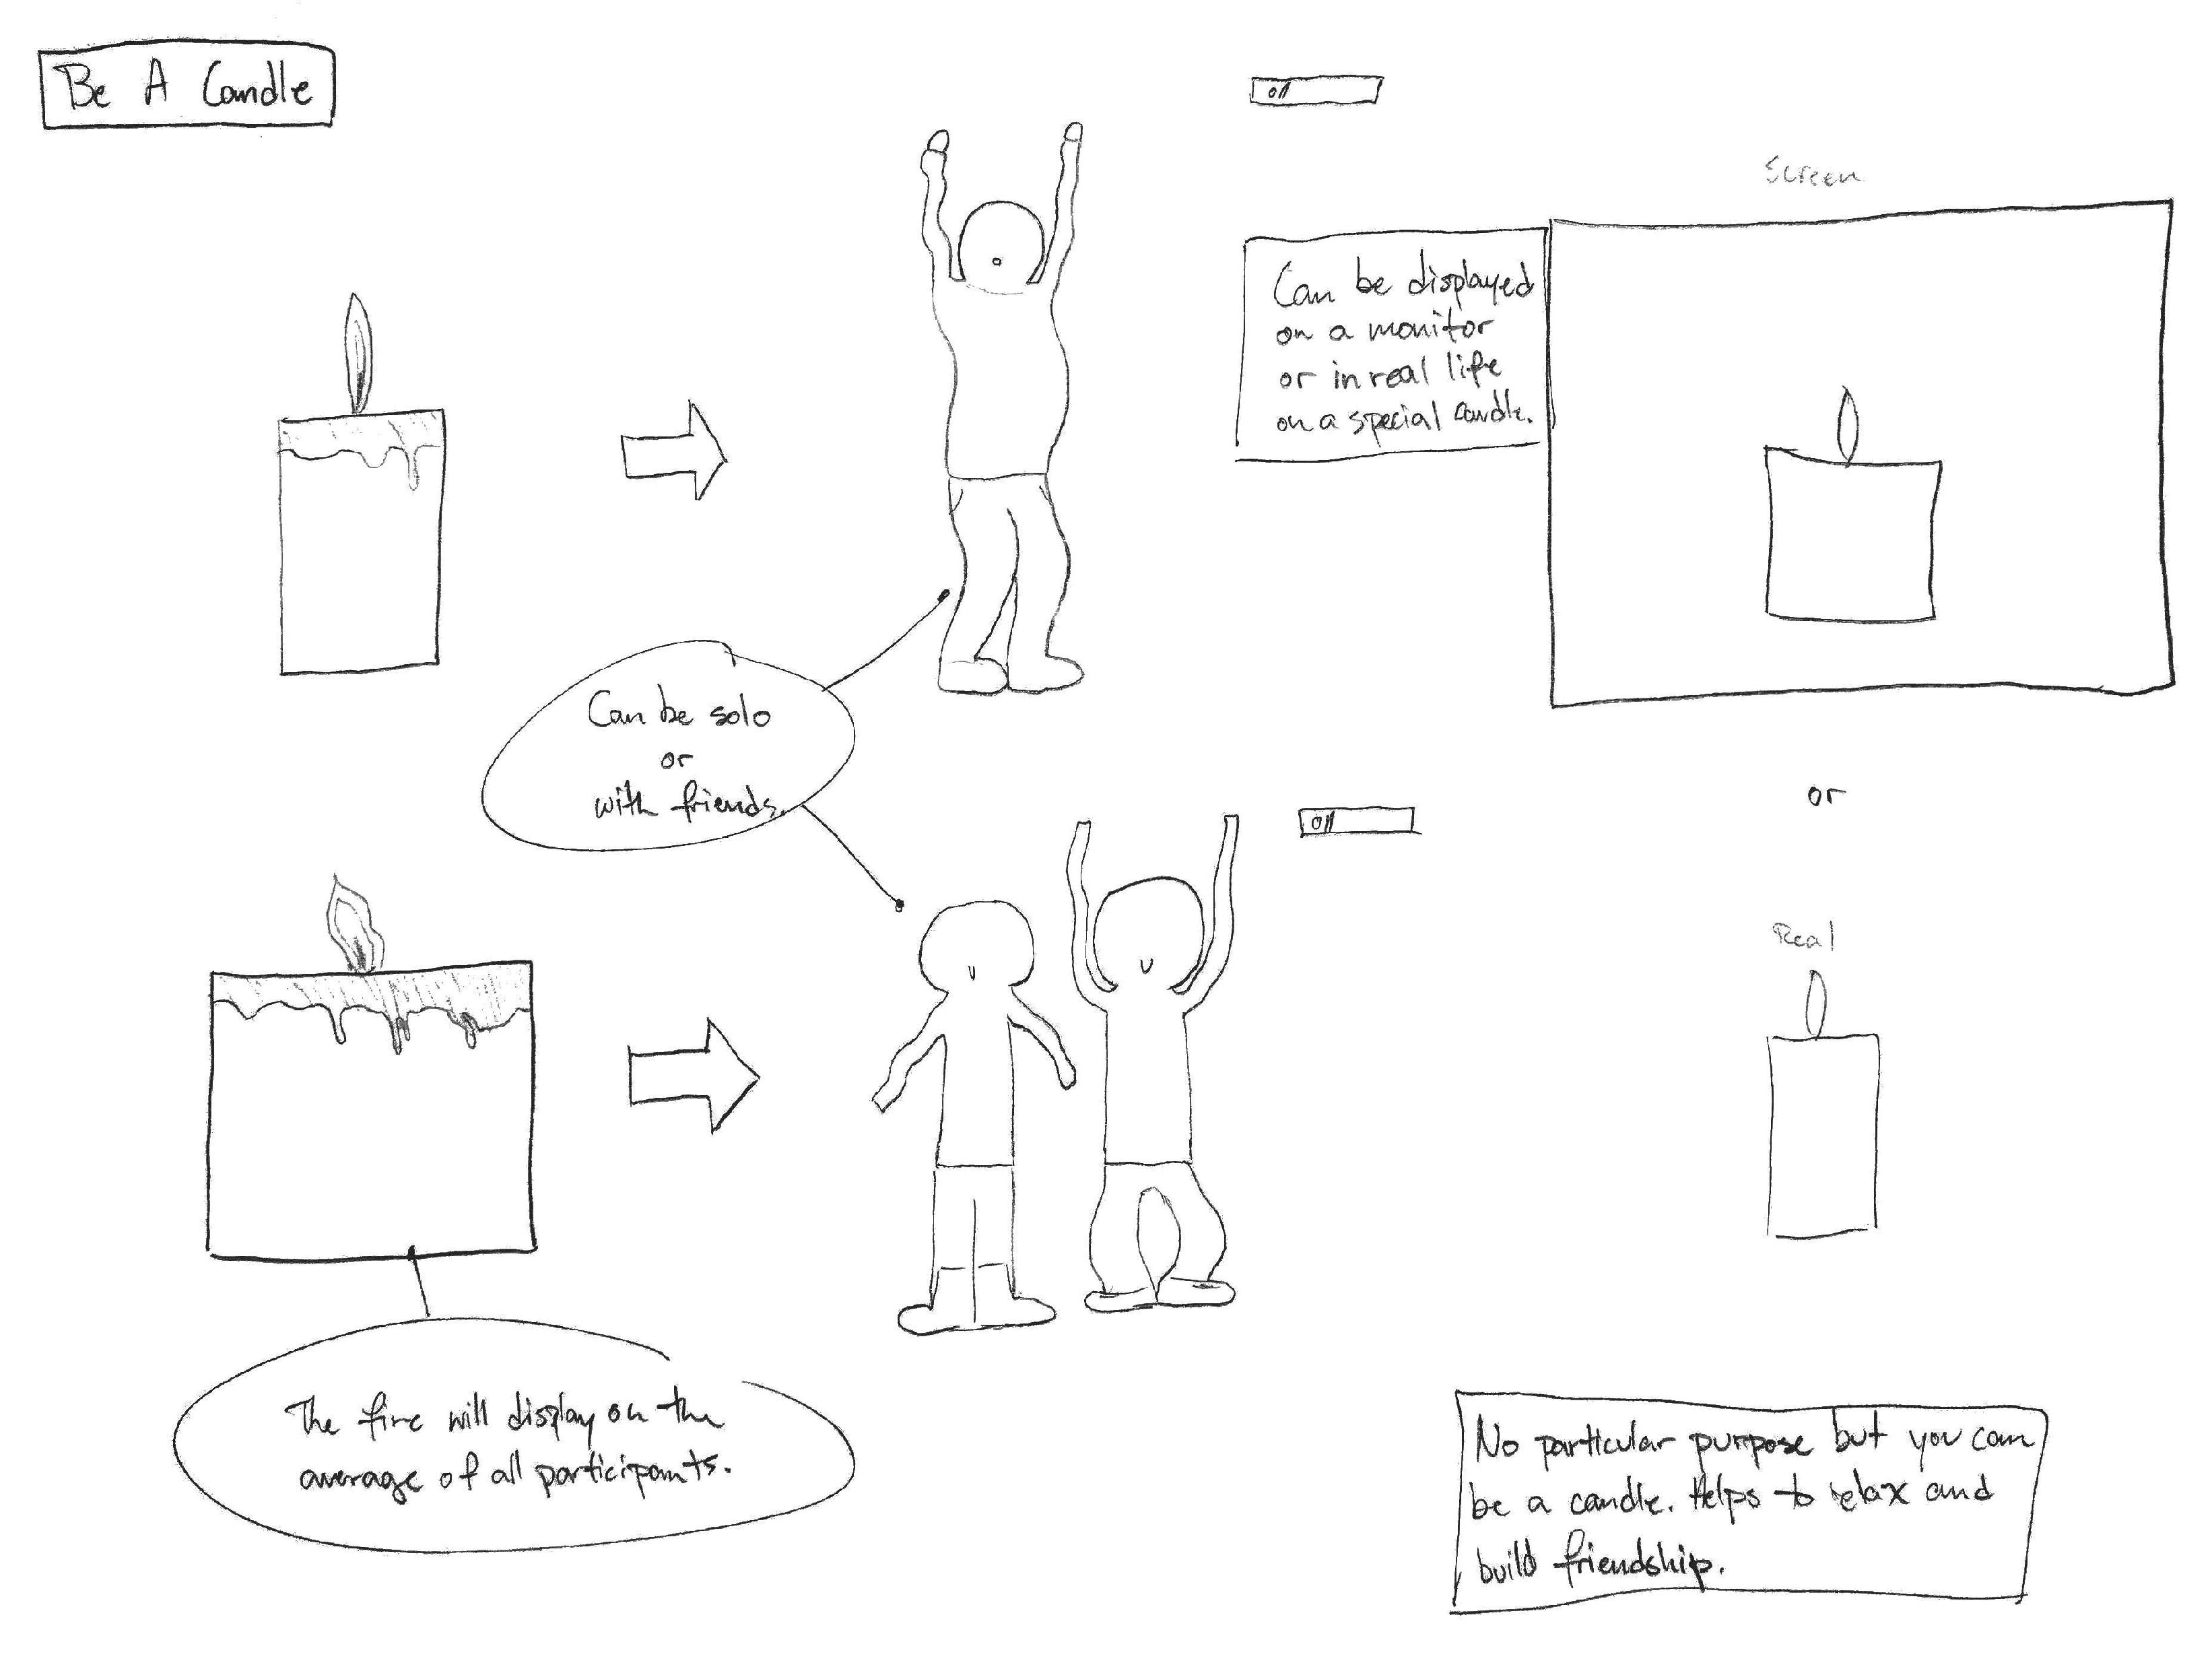 Be A Candle
Screen
Can be displayed
on a monitor
or in real life
on a special candle.
Can be solo
or
with friends.
or
Real
The fire will display on the
average of all participants.
No particular purpose but you can
be a candle. Helps to relax and
build friendship.